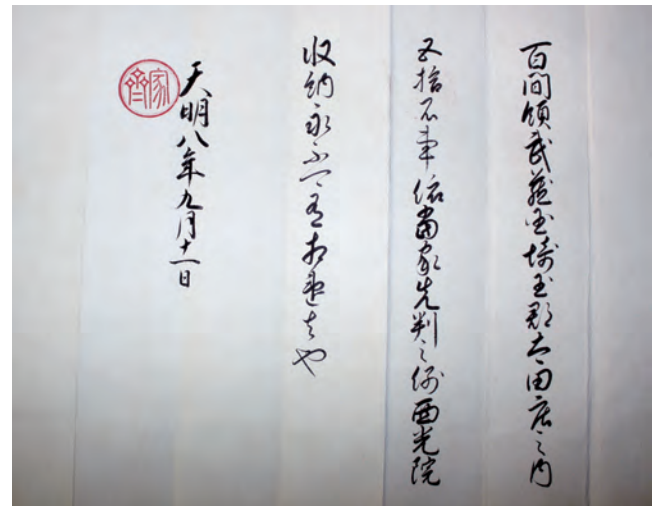 百間領武蔵国埼玉郡太田庄之内
五拾石事依当家先判之例西光院
収納永不可有相違者也
天明八年九月十一日
家齊